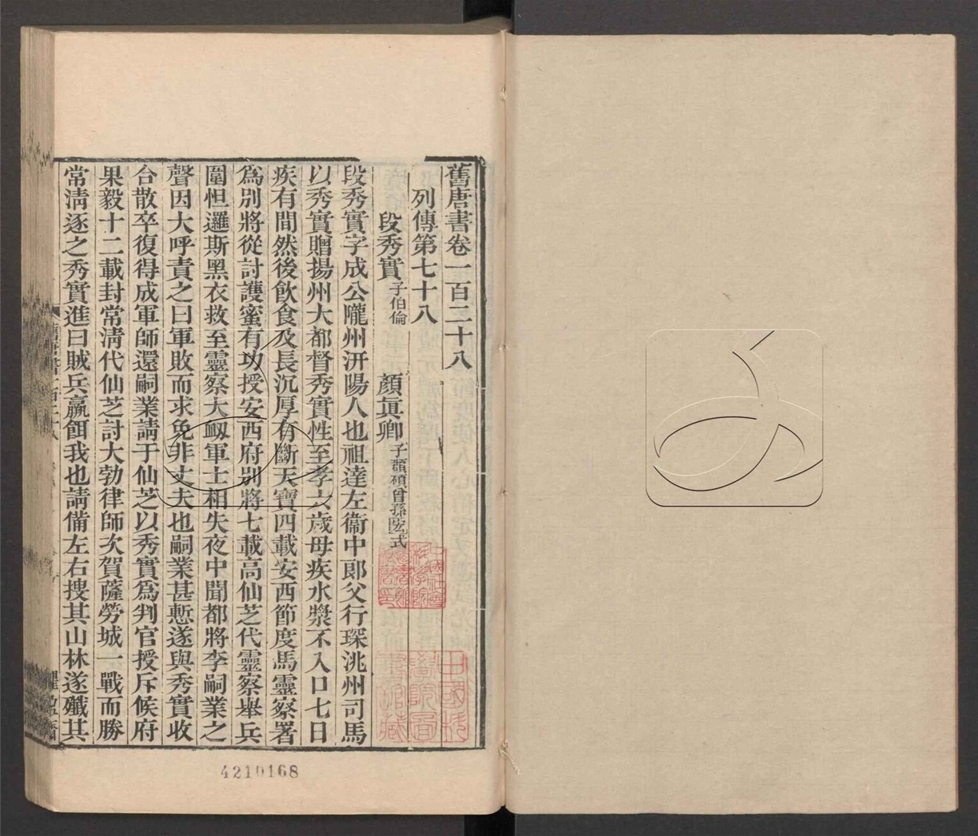 舊唐書卷一百二十八
列傳第七十八
段秀實 子伯倫 顏眞卿 子頵碩曾孫弘式
段秀實字成公隴州汧陽人也祖達左衞中郞父行琛洮州司馬
以秀實贈揚州大都督秀實性至孝六歲母疾水漿不入口七日
疾有間然後飮食及長沉厚有斷天寶四載安西節度馬靈察署
爲別將從討護蜜有功授安西府別將七載高仙芝代靈察舉兵
圍怛邏斯黑衣救至靈察大衂軍士相失夜中聞都將李嗣業之
聲因大呼責之曰軍敗而求免非丈夫也嗣業甚慙遂與秀實收
合散卒復得成軍師還嗣業請于仙芝以秀實爲判官授斥候府
果毅十二載封常淸代仙芝討大勃律師次賀薩勞城一戰而勝
常淸逐之秀實進曰賊兵羸餌我也請備左右搜其山林遂殲其
4210168